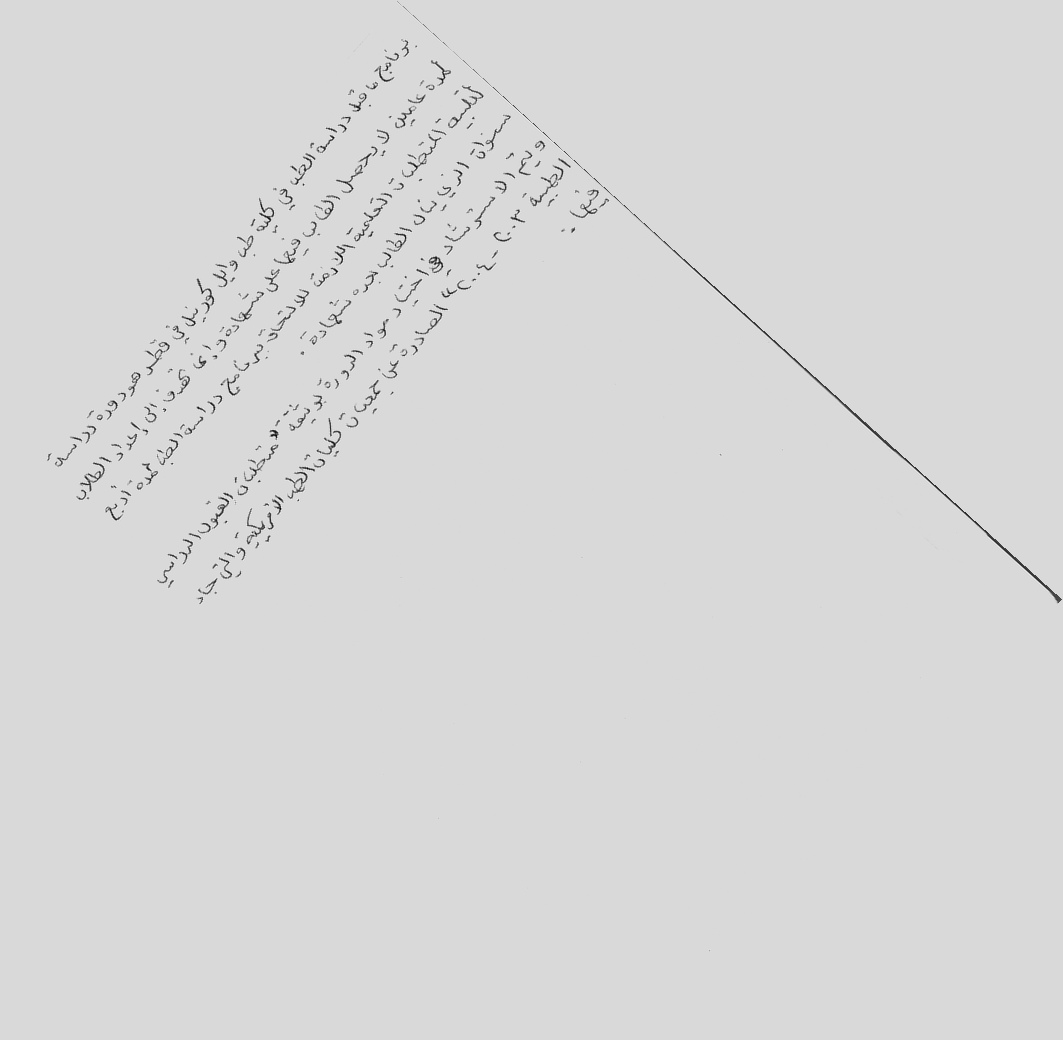 برنامج ما قبل دراسة الطب في كلية طب وايل كورنيل في قطر هو دورة دراسية
لمدة عامين لا يحصل الطالب فيها على شهادة وإنما تهدف إلى إعداد الطلاب
لتلبية المتطلبات التعليمية اللازمة للالتحاق ببرنامج دراسة الطب لمدة أربع
سنوات الذي ينال الطالب بعده شهادة.
ويتم الاسترشاد في اختيار مواد الدورة بوثيقة "متطلبات القبول الدراسي
الطبية ٢٠٠٣ - ٢٠٠٤" الصادرة عن جمعيات كليات الطب الأمريكية والتي جاء
فيها: